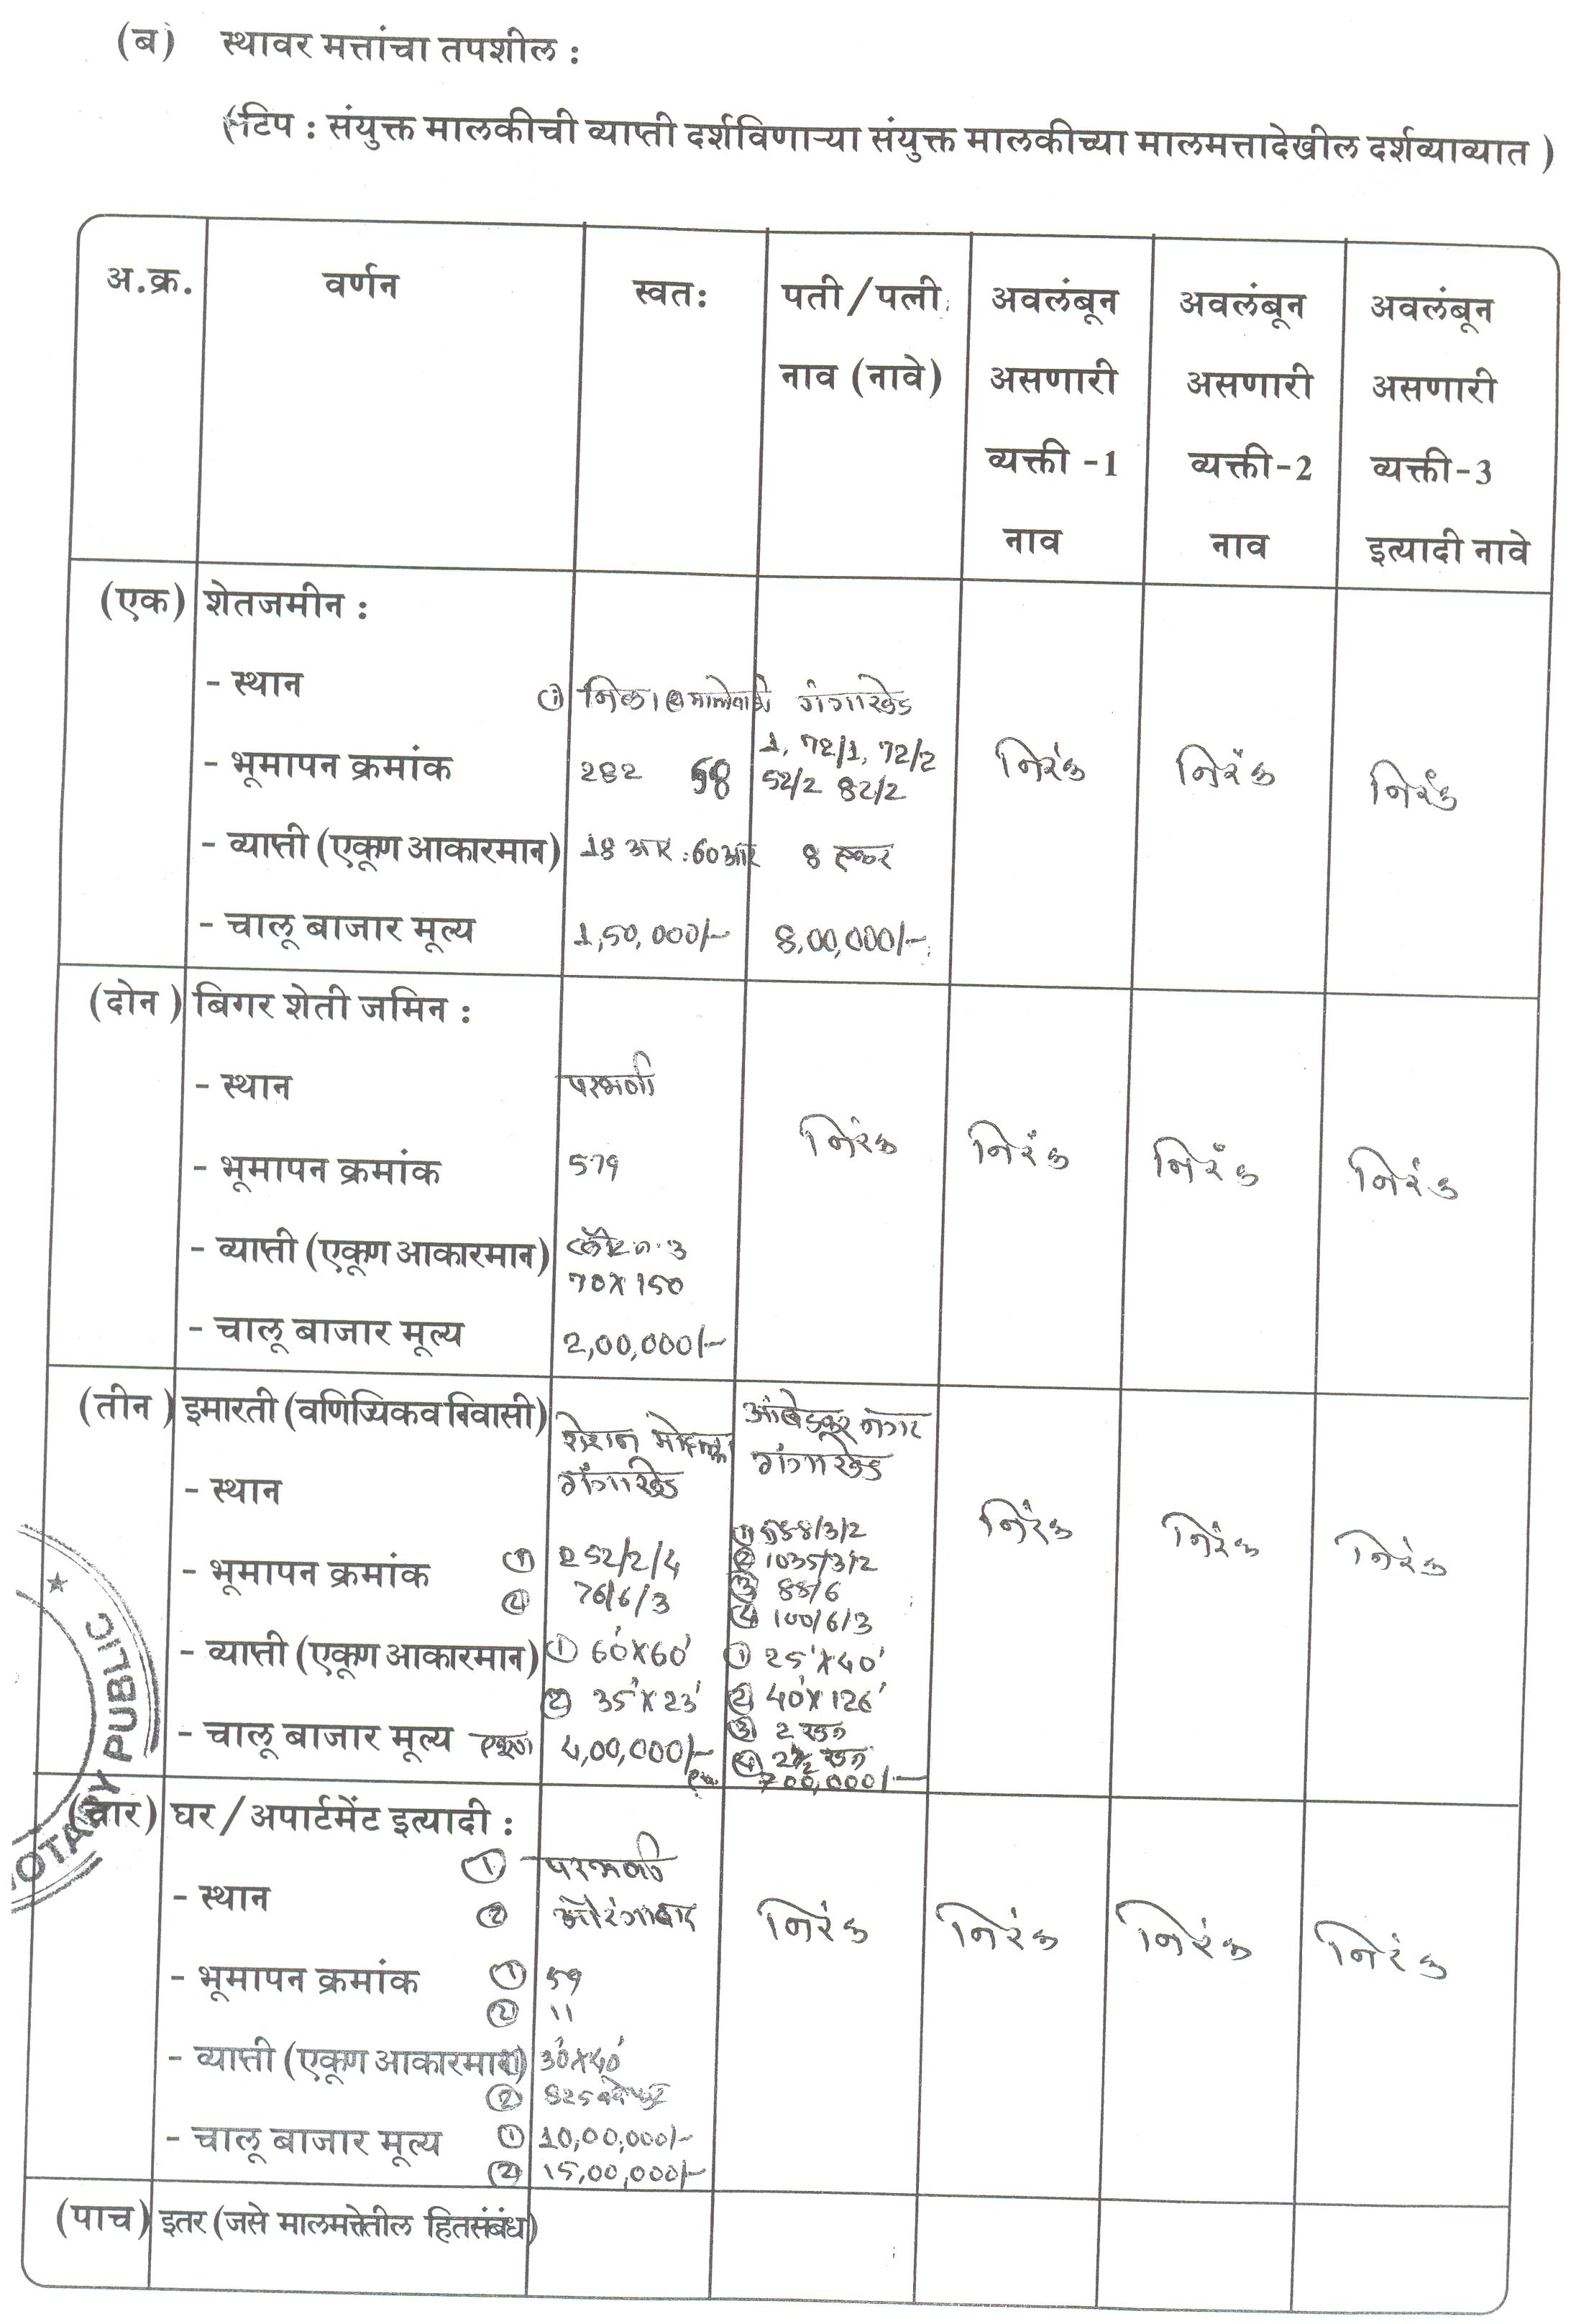 (ब) स्थावर मत्तांचा तपशील :
(टिप : संयुक्त मालकीची व्याप्ती दर्शविणाऱ्या संयुक्त मालकीच्या मालमत्तादेखील दर्शव्याव्यात )
अ.क्र. वर्णन स्वत: पती/पत्नी अवलंबून अवलंबून अवलंबून
नाव (नावे) असणारी असणारी असणारी
व्यक्ती -1 व्यक्ती-2 व्यक्ती-3
नाव नाव इत्यादी नावे
(एक) शेतजमीन :
- स्थान ① ② गंगाखेड
1, 72/1, 72/2
- भूमापन क्रमांक 282 58 52/2 82/2 निरंक निरंक निरंक
- व्याप्ती (एकूण आकारमान) 18 आर 60 आर 8 एकर
- चालू बाजार मूल्य 1,50,000/- 8,00,000/-
(दोन) बिगर शेती जमिन :
- स्थान परभणी
निरंक निरंक निरंक निरंक
- भूमापन क्रमांक 579
- व्याप्ती (एकूण आकारमान)
70 X 150
- चालू बाजार मूल्य 2,00,000/-
(तीन) इमारती (वणिज्यिकव निवासी) आंबेडकर नगर
गंगाखेड गंगाखेड
- स्थान निरंक निरंक निरंक
① 588/3/2
- भूमापन क्रमांक ① 252/2/4 ② 1035/3/2
② 76/6/3 ③ 88/6
④ 100/6/3
- व्याप्ती (एकूण आकारमान) ① 60'X60' ① 25'X40'
② 35'X23' ② 40'X126'
- चालू बाजार मूल्य एकूण 4,00,000/- ③ 2 खन
④ 2½ खन
700,000/-
(चार) घर/अपार्टमेंट इत्यादी :
① परभणी
- स्थान ② औरंगाबाद निरंक निरंक निरंक निरंक
- भूमापन क्रमांक ① 59
② 11
- व्याप्ती (एकूण आकारमान) ① 30'X40'
② 825
- चालू बाजार मूल्य ① 10,00,000/-
② 15,00,000/-
(पाच) इतर (जसे मालमत्तेतील हितसंबंध)
NOTARY PUBLIC